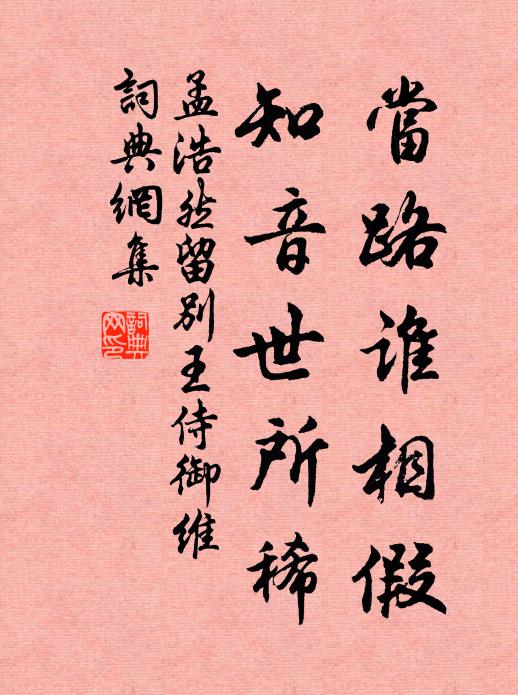 當路誰相假
知音世所稀
孟浩然留別王侍御維
詞典網集
詞典
网印